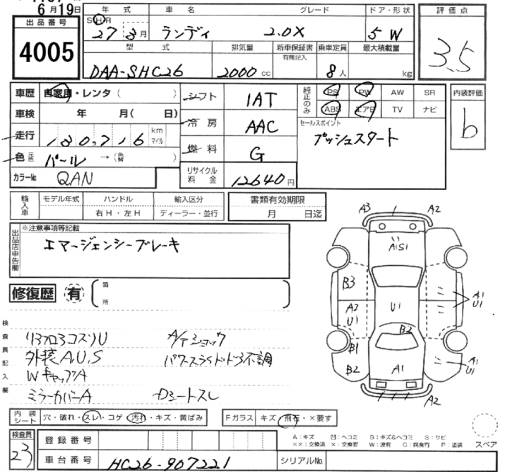 6月19日
出品番号
4005
年式 車名 グレード ドア・形状
27 3月 ランディ 2.0X 5 W
型式 排気量 新車保証書 有機記入 乗車定員 最大積載量
DAA-SHC26 2000 cc 8人 kg
評価点
3.5
車歴 自家用・レンタ( )
シフト IAT
純正のみ PS PW AW SR
ABS エアB TV ナビ
内装評価
b
車検 年 月( 日)
冷房 AAC
セールスポイント
プッシュスタート
走行 130,716 km マイル
燃料 G
色 パール →(色替 )
カラーNo QAN
リサイクル料金 12640円
輸入車 モデル年式 ハンドル 輸入区分
右H・左H ディーラー・並行
書類有効期限
月 日迄
出品店申告欄
※注意事項等記載
エマージェンシーブレーキ
修復歴 有 箇所
検査員記入欄
外装A.U.S
WキップA
ミラーカバーA Dシートスレ
A3 A2
A1S1
B3
A2 U1
U1
A1 U1
B2
B1
B2
A1
A1 U1
A2
A2
内装シート 穴・破れ・スレ・コゲ 汚れ・キズ・黄ばみ
Fガラス キズ 飛石・×要す
スペア
A:キズ U:ヘコミ B:キズ&ヘコミ S:サビ
検査員 23
登録番号
車台番号 HC26-907221
シリアルNo